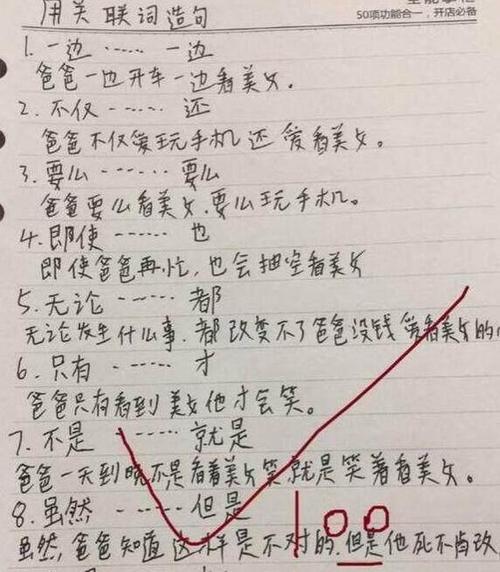 用关联词造句
50项功能合一，开店必备
1. 一边 …… 一边
爸爸一边开车一边看美女。
2. 不仅 …… 还
爸爸不仅爱玩手机还爱看美女。
3. 要么 …… 要么
爸爸要么看美女，要么玩手机。
4. 即使 …… 也
即使爸爸再忙，也会抽空看美女
5. 无论 …… 都
无论发生什么事，都改变不了爸爸没钱爱看美女的
6. 只有 …… 才
爸爸只有看到美女他才会笑。
7. 不是 …… 就是
爸爸一天到晚不是看着美女笑就是笑着看美女。
8. 虽然 …… 但是
虽然，爸爸知道这样是不对的，但是他死不肯改
100